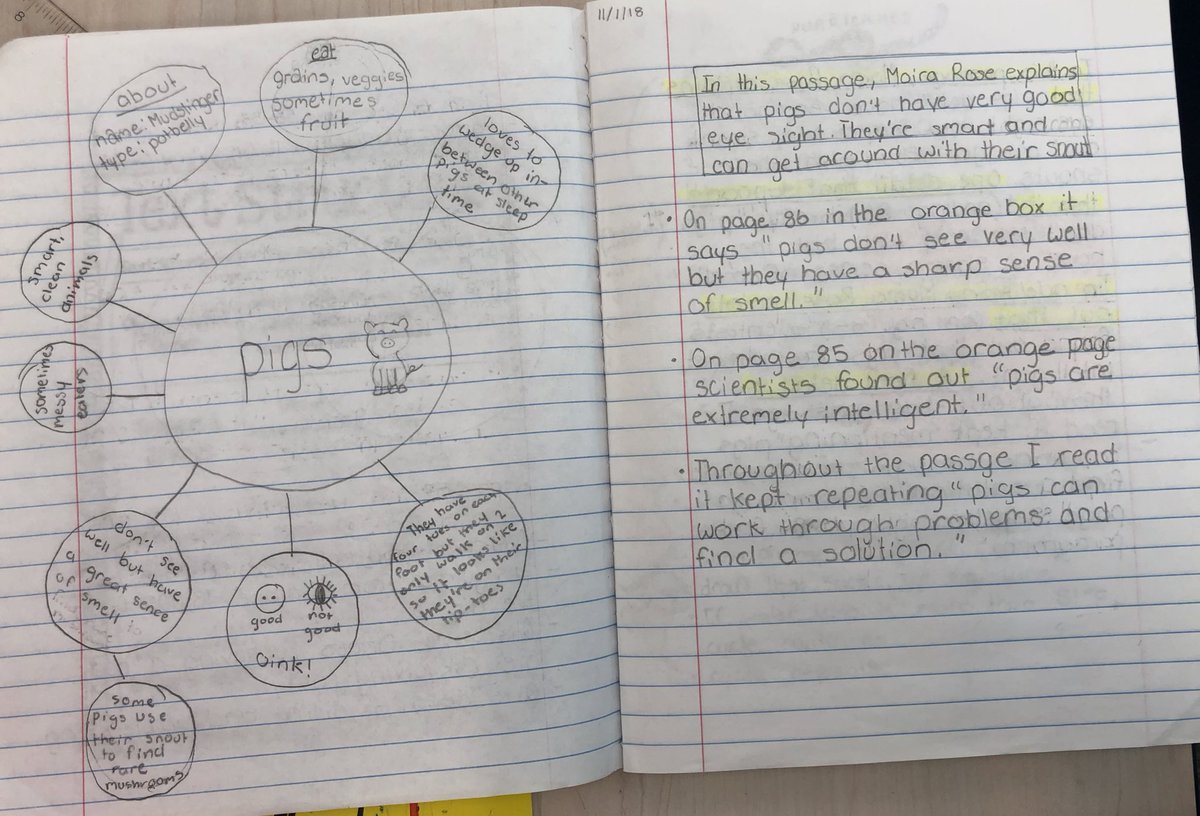 about
name: Mudslinger
type: potbelly
eat
grains, veggies
sometimes
fruit
loves to
wedge up in-
between other
pigs at sleep
time
smart,
clean
animals
pigs
sometimes
messy
eaters
don't see
well but have
a great sence
of smell
good
not
good
Oink!
They have
four toes on each
foot but they
only walk on 2
so it looks like
they're on their
tip-toes
some
pigs use
their snout
to find
rare
mushrooms
11/1/18
In this passage, Moira Rose explains
that pigs don't have very good
eye sight. They're smart and
can get around with their snout
• On page 86 in the orange box it
says "pigs don't see very well
but they have a sharp sense
of smell."
• On page 85 on the orange page
scientists found out "pigs are
extremely intelligent."
• Throughout the passge I read
it kept repeating "pigs can
work through problems and
find a solution."
8